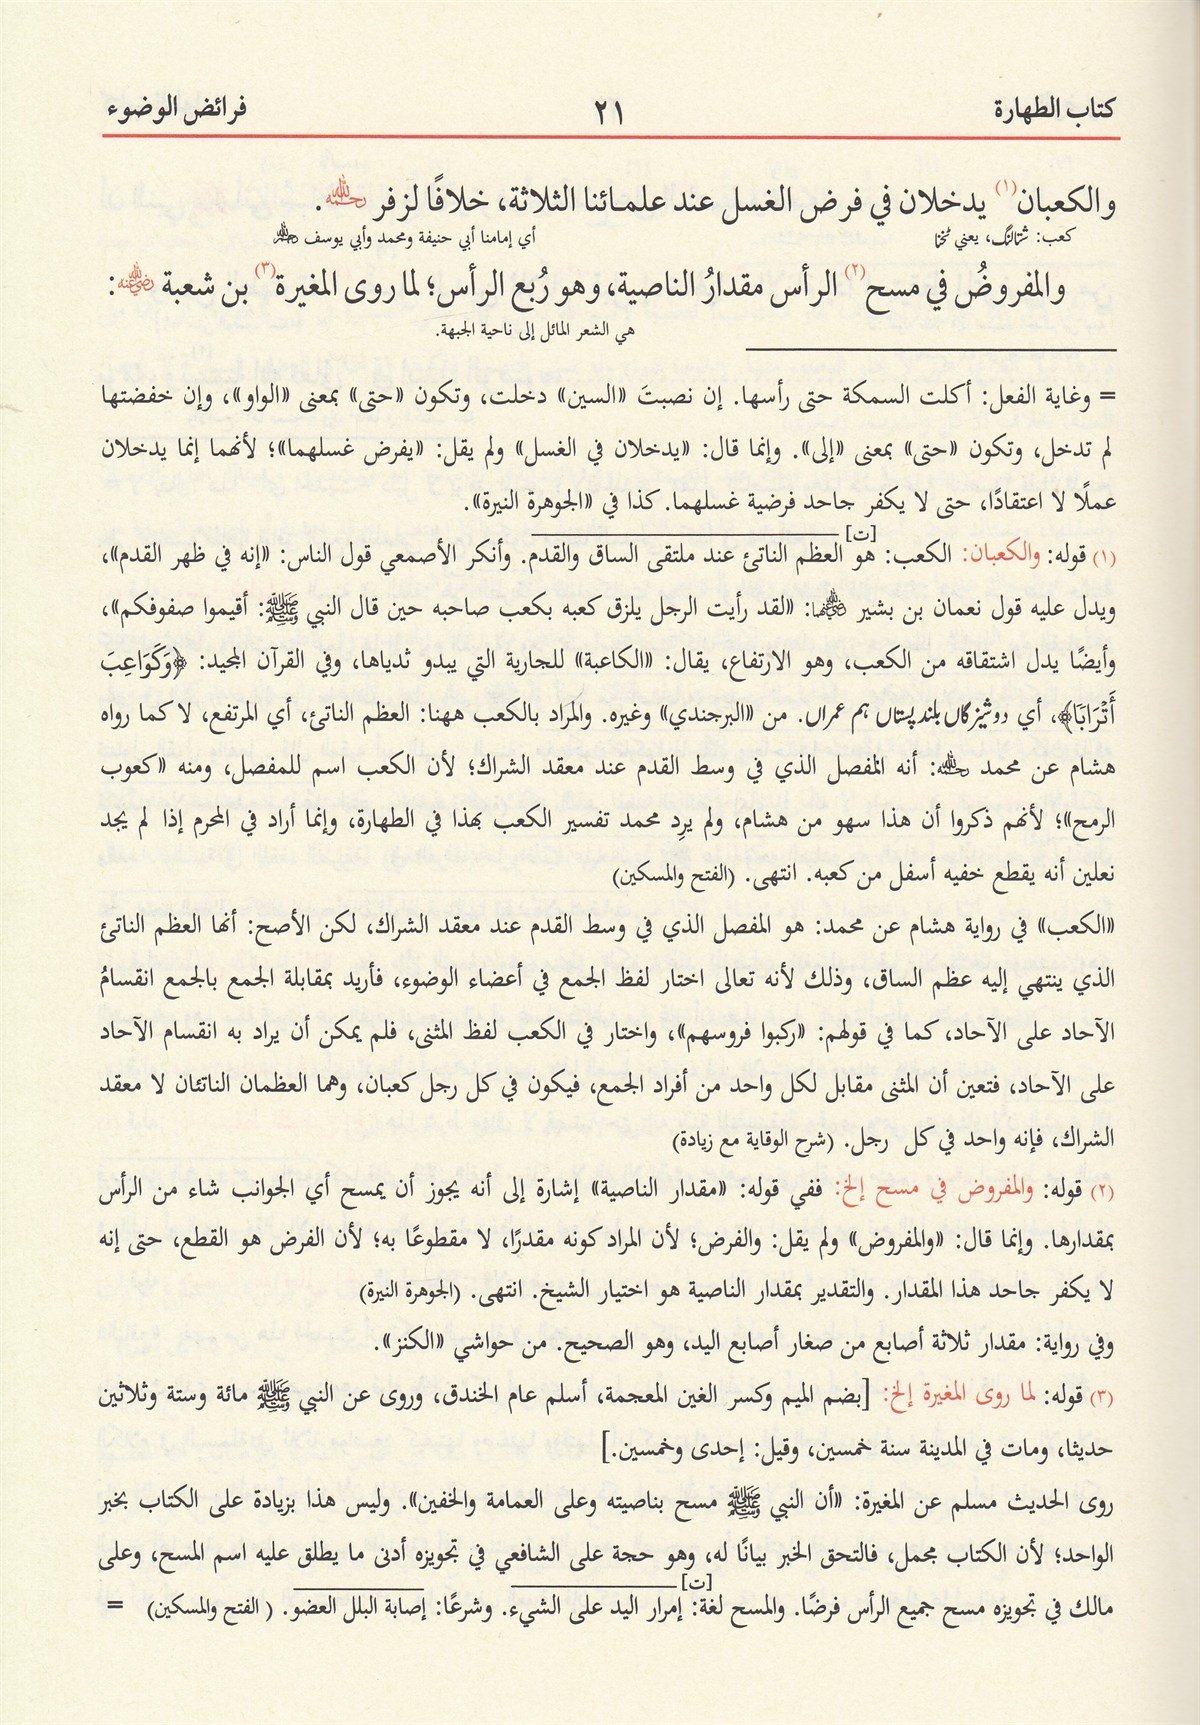 كتاب الطهارة ٢١ فرائض الوضوء
والكعبان(١) يدخلان في فرض الغسل عند علمائنا الثلاثة، خلافًا لزفر رحمه الله.
كعب: شتالنگ، يعني ٹخنا أي إمامنا أبي حنيفة ومحمد وأبي يوسف رحمهم الله
والمفروضُ في مسح(٢) الرأس مقدارُ الناصية، وهو رُبع الرأس؛ لما روى المغيرة(٣) بن شعبة رضي الله عنه:
هي الشعر المائل إلى ناحية الجبهة.
= وغاية الفعل: أكلت السمكة حتى رأسها. إن نصبتَ «السين» دخلت، وتكون «حتى» بمعنى «الواو»، وإن خفضتها
لم تدخل، وتكون «حتى» بمعنى «إلى». وإنما قال: «يدخلان في الغسل» ولم يقل: «يفرض غسلهما»؛ لأنهما إنما يدخلان
عملًا لا اعتقادًا، حتى لا يكفر جاحد فرضية غسلهما. كذا في «الجوهرة النيرة».
(١) قوله: والكعبان: الكعب: [ت] هو العظم الناتئ عند ملتقى الساق والقدم. وأنكر الأصمعي قول الناس: «إنه في ظهر القدم»،
ويدل عليه قول نعمان بن بشير رضي الله عنهما: «لقد رأيت الرجل يلزق كعبه بكعب صاحبه حين قال النبي ﷺ: أقيموا صفوفكم»،
وأيضًا يدل اشتقاقه من الكعب، وهو الارتفاع، يقال: «الكاعبة» للجارية التي يبدو ثدياها، وفي القرآن المجيد: ﴿وَكَوَاعِبَ
أَتْرَابًا﴾، أي دوشيزگان بلند پستان ہم عمراں. من «البرجندي» وغيره. والمراد بالكعب ههنا: العظم الناتئ، أي المرتفع، لا كما رواه
هشام عن محمد رحمه الله: أنه المفصل الذي في وسط القدم عند معقد الشراك؛ لأن الكعب اسم للمفصل، ومنه «كعوب
الرمح»؛ لأنهم ذكروا أن هذا سهو من هشام، ولم يرِد محمد تفسير الكعب بهذا في الطهارة، وإنما أراد في المحرم إذا لم يجد
نعلين أنه يقطع خفيه أسفل من كعبه. انتهى. (الفتح والمسكين)
«الكعب» في رواية هشام عن محمد: هو المفصل الذي في وسط القدم عند معقد الشراك، لكن الأصح: أنها العظم الناتئ
الذي ينتهي إليه عظم الساق، وذلك لأنه تعالى اختار لفظ الجمع في أعضاء الوضوء، فأريد بمقابلة الجمع بالجمع انقسامُ
الآحاد على الآحاد، كما في قولهم: «ركبوا فروسهم»، واختار في الكعب لفظ المثنى، فلم يمكن أن يراد به انقسام الآحاد
على الآحاد، فتعين أن المثنى مقابل لكل واحد من أفراد الجمع، فيكون في كل رجل كعبان، وهما العظمان الناتئان لا معقد
الشراك، فإنه واحد في كل رجل. (شرح الوقاية مع زيادة)
(٢) قوله: والمفروض في مسح إلخ: ففي قوله: «مقدار الناصية» إشارة إلى أنه يجوز أن يمسح أي الجوانب شاء من الرأس
بمقدارها. وإنما قال: «والمفروض» ولم يقل: والفرض؛ لأن المراد كونه مقدرًا، لا مقطوعًا به؛ لأن الفرض هو القطع، حتى إنه
لا يكفر جاحد هذا المقدار. والتقدير بمقدار الناصية هو اختيار الشيخ. انتهى. (الجوهرة النيرة)
وفي رواية: مقدار ثلاثة أصابع من صغار أصابع اليد، وهو الصحيح. من حواشي «الكنز».
(٣) قوله: لما روى المغيرة إلخ: [بضم الميم وكسر الغين المعجمة، أسلم عام الخندق، وروى عن النبي ﷺ مائة وستة وثلاثين
حديثا، ومات في المدينة سنة خمسين، وقيل: إحدى وخمسين.]
روى الحديث مسلم عن المغيرة: «أن النبي ﷺ مسح بناصيته وعلى العمامة والخفين». وليس هذا بزيادة على الكتاب بخبر
الواحد؛ لأن الكتاب مجمل، فالتحق الخبر بيانًا له، وهو حجة على الشافعي في تجويزه أدنى ما يطلق عليه اسم المسح، وعلى
مالك في تجويزه مسح جميع الرأس فرضًا. والمسح لغة: [ت] إمرار اليد على الشيء. وشرعًا: إصابة البلل العضو. ( الفتح والمسكين) =